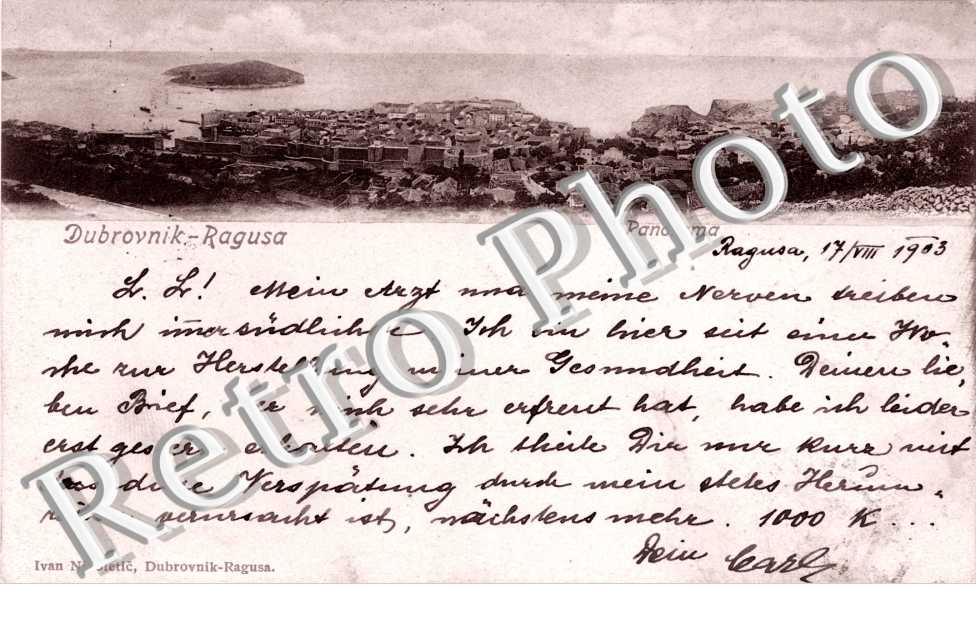 Dubrovnik-Ragusa
Panorama
Ragusa, 17/VIII 1903
L. L! Mein Arzt und meine Nerven treiben
mich immer südlicher. Ich bin hier seit einer Wo-
che zur Herstellung meiner Gesundheit. Deinen lie-
ben Brief, der mich sehr erfreut hat, habe ich leider
erst gestern erhalten. Ich theile Dir nur kurz mit
dass diese Verspätung durch mein stetes Herum-
verursacht ist, nächstens mehr. 1000 K...
Dein Carl
Ivan Dubrovnik-Ragusa.
Retro Photo